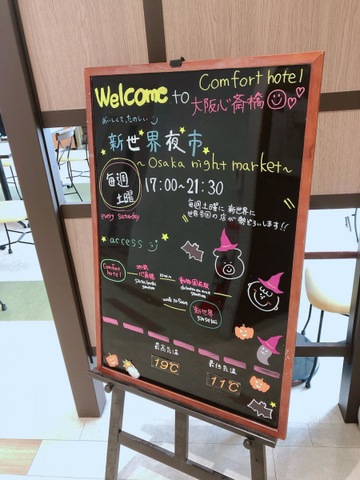 Welcome to Comfort hotel
大阪心斎橋
おいしくて、たのしい
新世界夜市
~Osaka night market~
毎週
土曜
17:00~21:30
every Saturday
毎週土曜に新世界に
世界各国の店が勢ぞろいします!!
access
Comfort
hotel
地鉄
動物園前駅
station
walk to 5min
新世界
最高気温
最低気温
19℃
11℃